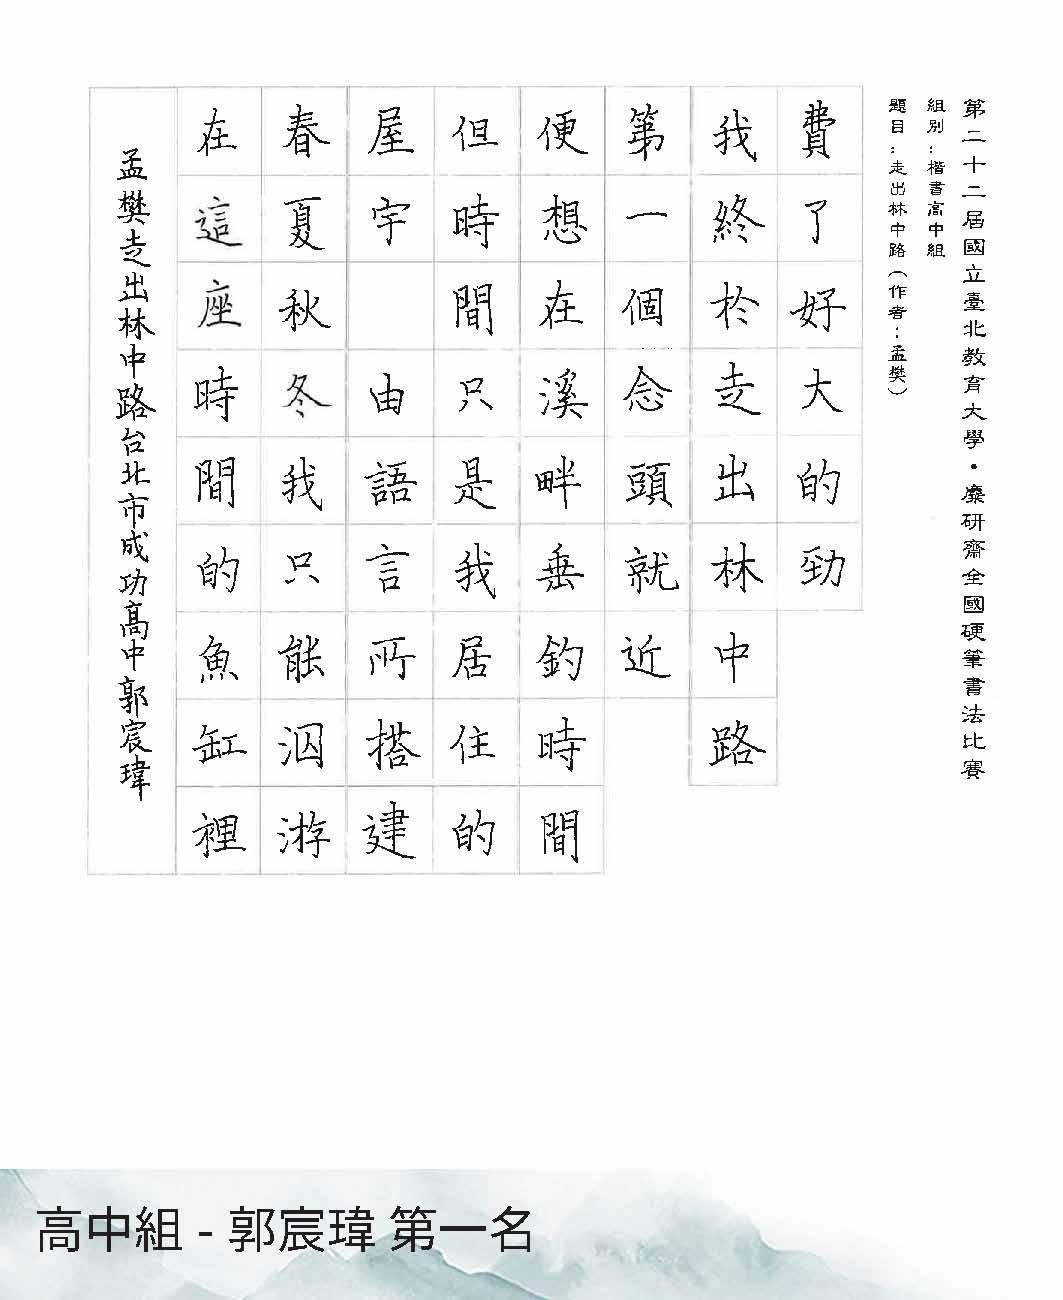 第二十二屆國立臺北教育大學・麋研齋全國硬筆書法比賽
組別：楷書高中組
題目：走出林中路（作者：孟樊）
費了好大的勁
我終於走出林中路
第一個念頭就近
便想在溪畔垂釣時間
但時間只是我居住的
屋宇　由語言所搭建
春夏秋冬我只能泅游
在這座時間的魚缸裡
孟樊走出林中路台北市成功高中郭宸瑋
高中組 - 郭宸瑋 第一名